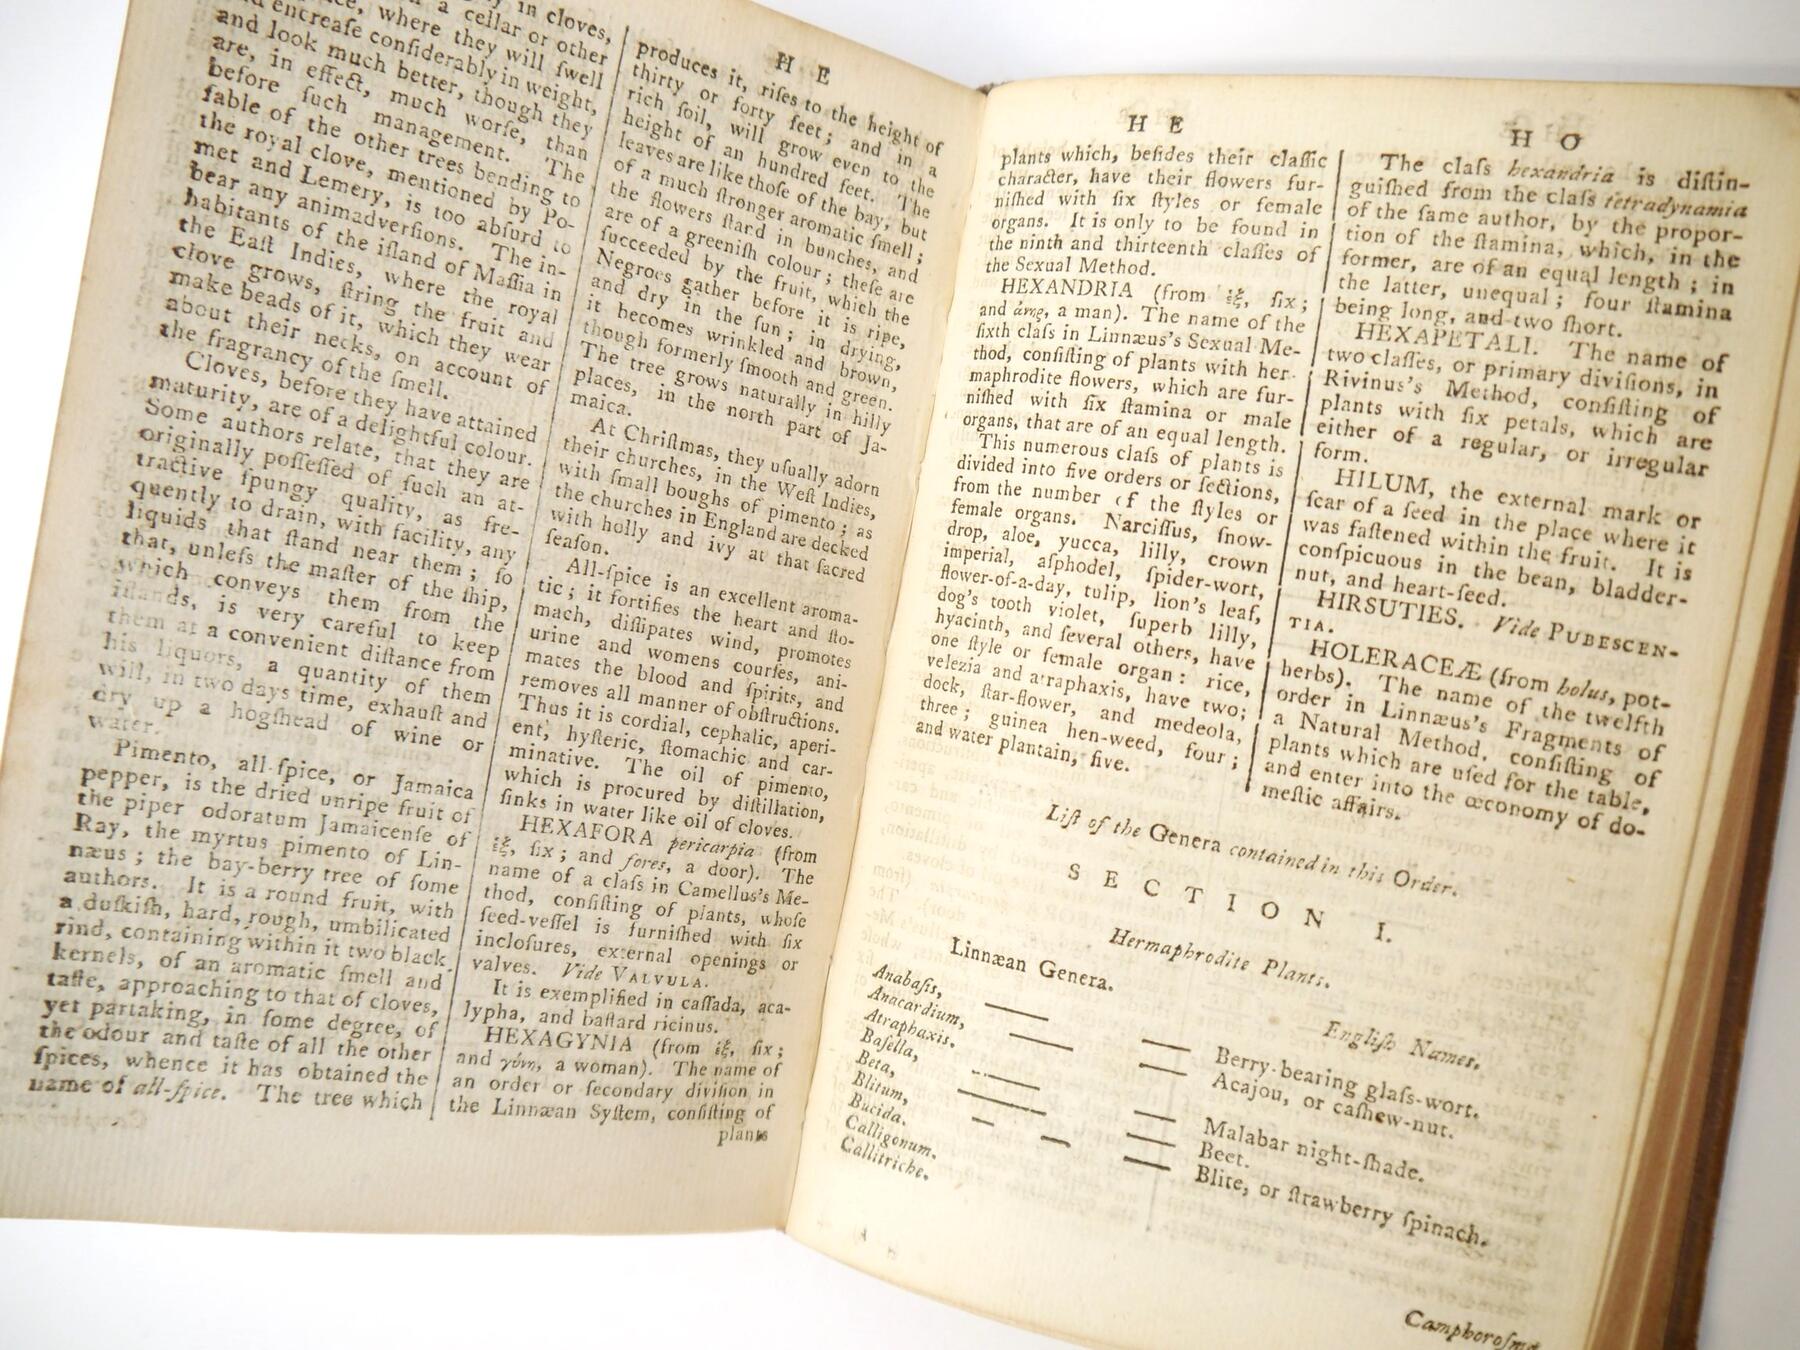 in cloves,
a cellar or other
where they will ſwell
encreaſe conſiderably in weight,
and look much better, though they
are, in effect, much worſe, than
before ſuch management. The
fable of the other trees bending to
the royal clove, mentioned by Po-
met and Lemery, is too abſurd to
bear any animadverſions. The in-
habitants of the iſland of Maſſia in
the Eaſt Indies, where the royal
clove grows, ſtring the fruit and
make beads of it, which they wear
about their necks, on account of
the fragrancy of the ſmell.
Cloves, before they have attained
maturity, are of a delightful colour.
Some authors relate, that they are
originally poſſeſſed of ſuch an at-
tractive ſpungy quality, as fre-
quently to drain, with facility, any
liquids that ſtand near them; ſo
that, unleſs the maſter of the ſhip,
which conveys them from the
iſlands, is very careful to keep
them at a convenient diſtance from
his liquors, a quantity of them
will, in two days time, exhauſt and
dry up a hogſhead of wine or
water.
Pimento, all-ſpice, or Jamaica
pepper, is the dried unripe fruit of
the piper odoratum Jamaicenſe of
Ray, the myrtus pimento of Lin-
næus; the bay-berry tree of ſome
authors. It is a round fruit, with
a duſkiſh, hard, rough, umbilicated
rind, containing within it two black
kernels, of an aromatic ſmell and
taſte, approaching to that of cloves,
yet partaking, in ſome degree, of
the odour and taſte of all the other
ſpices, whence it has obtained the
name of all-ſpice. The tree which
H E
produces it, riſes to the height of
thirty or forty feet; and in a
rich ſoil, will grow even to the
height of an hundred feet. The
leaves are like thoſe of the bay, but
of a much ſtronger aromatic ſmell;
the flowers ſtand in bunches, and
are of a greeniſh colour; theſe are
ſucceeded by the fruit, which the
Negroes gather before it is ripe,
and dry in the ſun; in drying,
it becomes wrinkled and brown,
though formerly ſmooth and green.
The tree grows naturally in hilly
places, in the north part of Ja-
maica.
At Chriſtmas, they uſually adorn
their churches, in the Weſt Indies,
with ſmall boughs of pimento; as
the churches in England are decked
with holly and ivy at that ſacred
ſeaſon.
All-ſpice is an excellent aroma-
tic; it fortifies the heart and ſto-
mach, diſſipates wind, promotes
urine and womens courſes, ani-
mates the blood and ſpirits, and
removes all manner of obſtructions.
Thus it is cordial, cephalic, aperi-
ent, hyſteric, ſtomachic and car-
minative. The oil of pimento,
which is procured by diſtillation,
ſinks in water like oil of cloves.
HEXAFORA pericarpia (from
ἑξ, ſix; and fores, a door). The
name of a claſs in Camellus's Me-
thod, conſiſting of plants, whoſe
ſeed-veſſel is furniſhed with ſix
incloſures, external openings or
valves. Vide VALVULA.
It is exemplified in caſſada, aca-
lypha, and baſtard ricinus.
HEXAGYNIA (from ἑξ, ſix;
and γύνη, a woman). The name of
an order or ſecondary diviſion in
the Linnæan Syſtem, conſiſting of
plants
H E
plants which, beſides their claſſic
character, have their flowers fur-
niſhed with ſix ſtyles or female
organs. It is only to be found in
the ninth and thirteenth claſſes of
the Sexual Method.
HEXANDRIA (from ἑξ, ſix;
and ἀνης, a man). The name of the
ſixth claſs in Linnæus's Sexual Me-
thod, conſiſting of plants with her-
maphrodite flowers, which are fur-
niſhed with ſix ſtamina or male
organs, that are of an equal length.
This numerous claſs of plants is
divided into five orders or ſections,
from the number of the ſtyles or
female organs. Narciſſus, ſnow-
drop, aloe, yucca, lilly, crown
imperial, aſphodel, ſpider-wort,
flower-of-a-day, tulip, lion's leaf,
dog's tooth violet, ſuperb lilly,
hyacinth, and ſeveral others, have
one ſtyle or female organ: rice,
velezia and atraphaxis, have two;
dock, ſtar-flower, and medeola,
three; guinea hen-weed, four;
and water plantain, five.
H O
The claſs hexandria is diſtin-
guiſhed from the claſs tetradynamia
of the ſame author, by the propor-
tion of the ſtamina, which, in the
former, are of an equal length; in
the latter, unequal; four ſtamina
being long, and two ſhort.
HEXAPETALI. The name of
two claſſes, or primary diviſions, in
Rivinus's Method, conſiſting of
plants with ſix petals, which are
either of a regular, or irregular
form.
HILUM, the external mark or
ſcar of a ſeed in the place where it
was faſtened within the fruit. It is
conſpicuous in the bean, bladder-
nut, and heart-ſeed.
HIRSUTIES. Vide PUBESCEN-
TIA.
HOLERACEÆ (from holus, pot-
herbs). The name of the twelfth
order in Linnæus's Fragments of
a Natural Method, conſiſting of
plants which are uſed for the table,
and enter into the œconomy of do-
meſtic affairs.
Liſt of the Genera contained in this Order.
SECTION I.
Hermaphrodite Plants.
Linnæan Genera.
English Names.
Anabaſis, — — Berry-bearing glaſs-wort.
Anacardium, — — Acajou, or caſhew-nut.
Atraphaxis.
Baſella, — — Malabar night-ſhade.
Beta, — — Beet.
Blitum, — — — Blite, or ſtrawberry ſpinach.
Bucida.
Calligonum.
Callitriche.
Camphoroſma